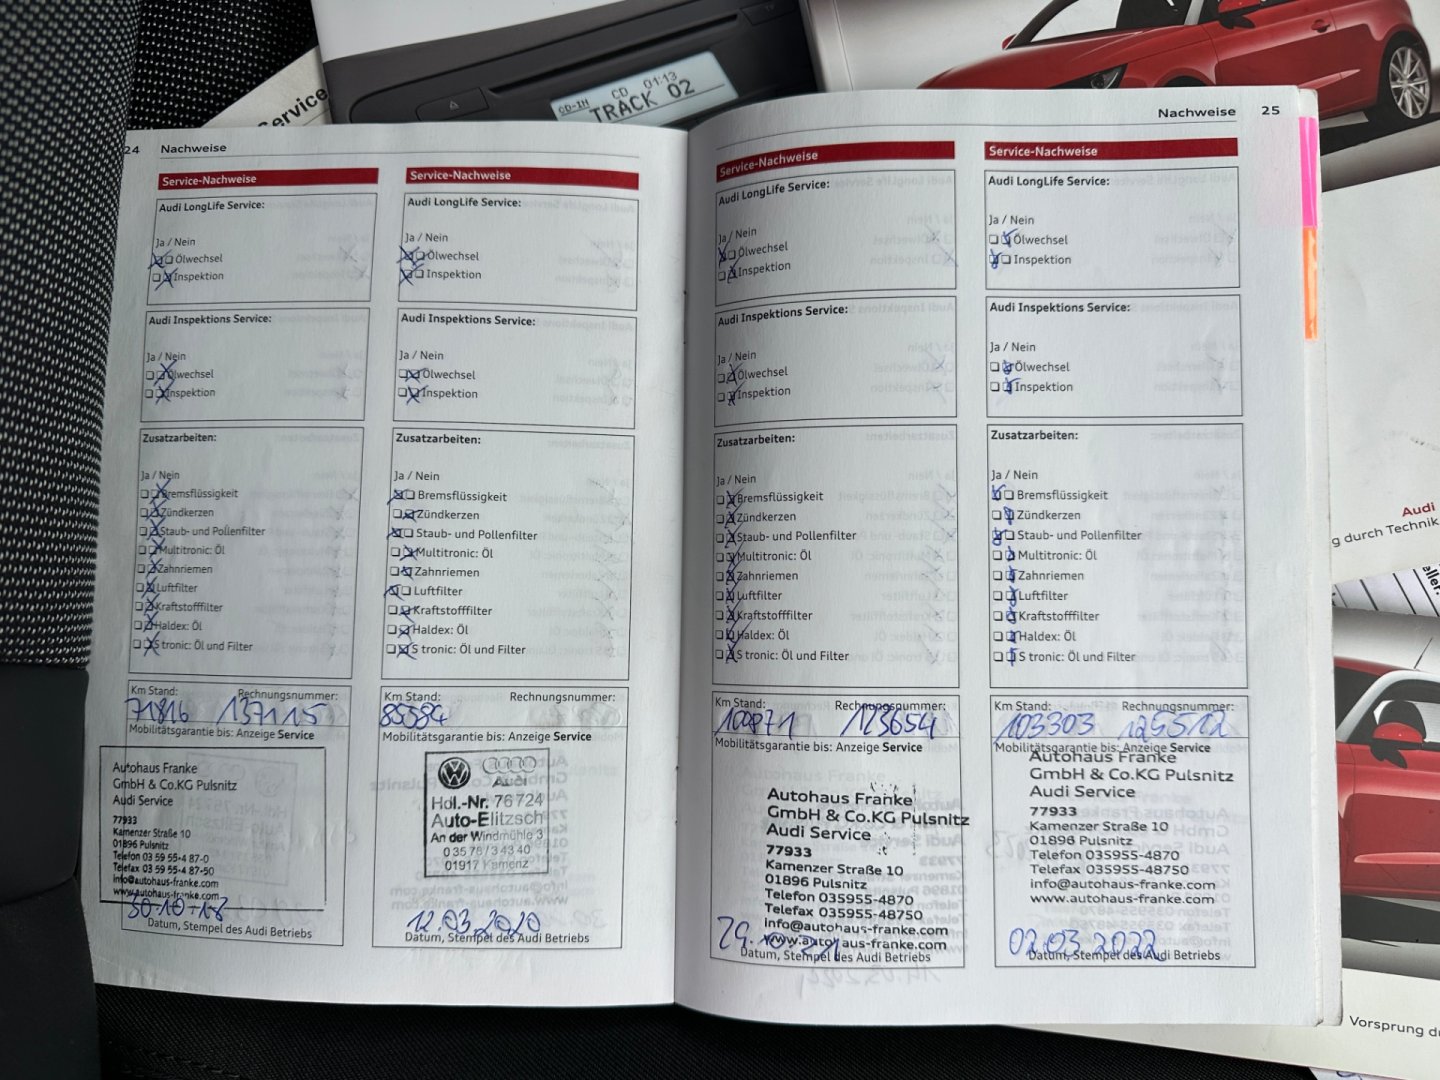 Service
CD-IN CD 01:13
TRACK 02
TV
24 Nachweise
Service-Nachweise
Audi LongLife Service:
Ja / Nein
Ölwechsel
Inspektion
Audi Inspektions Service:
Ja / Nein
Ölwechsel
Inspektion
Zusatzarbeiten:
Ja / Nein
Bremsflüssigkeit
Zündkerzen
Staub- und Pollenfilter
Multitronic: Öl
Zahnriemen
Luftfilter
Kraftstofffilter
Haldex: Öl
S tronic: Öl und Filter
Km Stand: Rechnungsnummer:
71816 137115
Mobilitätsgarantie bis: Anzeige Service
Autohaus Franke
GmbH & Co.KG Pulsnitz
Audi Service
77933
Kamenzer Straße 10
01896 Pulsnitz
Telefon 03 59 55-4 87-0
Telefax 03 59 55-4 87-50
info@autohaus-franke.com
www.autohaus-franke.com
30-10-18
Datum, Stempel des Audi Betriebs
Service-Nachweise
Audi LongLife Service:
Ja / Nein
Ölwechsel
Inspektion
Audi Inspektions Service:
Ja / Nein
Ölwechsel
Inspektion
Zusatzarbeiten:
Ja / Nein
Bremsflüssigkeit
Zündkerzen
Staub- und Pollenfilter
Multitronic: Öl
Zahnriemen
Luftfilter
Kraftstofffilter
Haldex: Öl
S tronic: Öl und Filter
Km Stand: Rechnungsnummer:
85584
Mobilitätsgarantie bis: Anzeige Service
Audi
Hdl.-Nr. 76724
Auto-Elitzsch
An der Windmühle 3
0 35 78 / 3 43 40
01917 Kamenz
12.03.2020
Datum, Stempel des Audi Betriebs
Nachweise 25
Service-Nachweise
Audi LongLife Service:
Ja / Nein
Ölwechsel
Inspektion
Audi Inspektions Service:
Ja / Nein
Ölwechsel
Inspektion
Zusatzarbeiten:
Ja / Nein
Bremsflüssigkeit
Zündkerzen
Staub- und Pollenfilter
Multitronic: Öl
Zahnriemen
Luftfilter
Kraftstofffilter
Haldex: Öl
S tronic: Öl und Filter
Km Stand: Rechnungsnummer:
100871 123654
Mobilitätsgarantie bis: Anzeige Service
Autohaus Franke
GmbH & Co.KG Pulsnitz
Audi Service
77933
Kamenzer Straße 10
01896 Pulsnitz
Telefon 035955-4870
Telefax 035955-48750
info@autohaus-franke.com
www.autohaus-franke.com
29.10.21
Datum, Stempel des Audi Betriebs
Service-Nachweise
Audi LongLife Service:
Ja / Nein
Ölwechsel
Inspektion
Audi Inspektions Service:
Ja / Nein
Ölwechsel
Inspektion
Zusatzarbeiten:
Ja / Nein
Bremsflüssigkeit
Zündkerzen
Staub- und Pollenfilter
Multitronic: Öl
Zahnriemen
Luftfilter
Kraftstofffilter
Haldex: Öl
S tronic: Öl und Filter
Km Stand: Rechnungsnummer:
103303 125512
Mobilitätsgarantie bis: Anzeige Service
Autohaus Franke
GmbH & Co.KG Pulsnitz
Audi Service
77933
Kamenzer Straße 10
01896 Pulsnitz
Telefon 035955-4870
Telefax 035955-48750
info@autohaus-franke.com
www.autohaus-franke.com
02.03.2022
Datum, Stempel des Audi Betriebs
Audi
g durch Technik
Vorsprung du